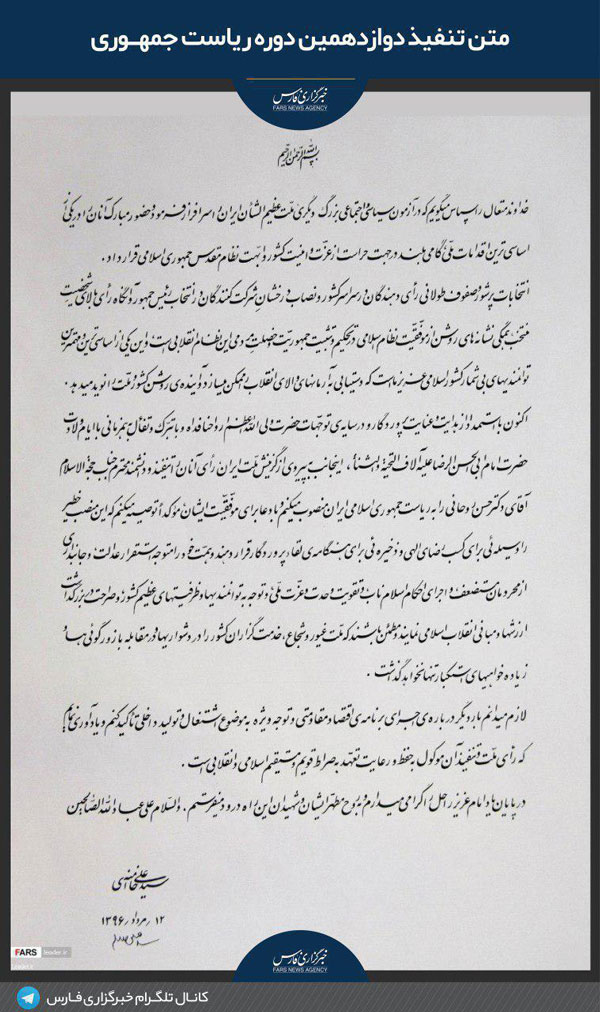 متن تنفیذ دوازدهمین دوره ریاست جمهوری
خبرگزاری فارس
FARS NEWS AGENCY
بسم الله الرحمن الرحیم
خداوند متعال را سپاس میگویم که در آزمون سیاسی و اجتماعی بزرگ دیگری ملت عظیم‌الشأن ایران را سرافراز فرمود و حضور مبارک آنان را در یکی از
اساسی‌ترین اقدامات ملی، گامی بلند در جهت حراست از عزت و امنیت کشور و ابهت نظام مقدس جمهوری اسلامی قرار داد.
انتخابات پرشور و صفوف طولانی رأی دهندگان در سراسر کشور و نصاب درخشان شرکت کنندگان در انتخاب رئیس جمهور و آنگاه رأی بالای شخصیت
منتخب، همگی نشانه‌های روشن از موفقیت نظام اسلامی در تحکیم و تثبیت جمهوریت و خصلت مردمی این نظام انقلابی است و این یکی از اساسی‌ترین و مهمترین
توانمندیهای بی‌شمار کشور اسلامی عزیز ما است که دستیابی به آرمانهای والای انقلاب را ممکن میسازد و آینده‌ی روشن کشور و ملت را نوید میدهد.
اکنون با استمداد از هدایت و عنایت پروردگار و در سایه‌ی توجهات حضرت ولی الله اعظم روحنا فداه و با تبرک و تفأل به همزمانی با ایام ولادت
حضرت امام ابی‌الحسن الرضا علیه آلاف التحیة والثناء، اینجانب به پیروی از گزینش ملت ایران رأی آنان را تنفیذ و دانشمند محترم جناب حجة‌الاسلام
آقای دکتر حسن روحانی را به ریاست جمهوری اسلامی ایران منصوب میکنم و با دعا برای موفقیت ایشان مؤکداً توصیه میکنم که این منصب خطیر
را وسیله‌ئی برای کسب رضای الهی و ذخیره‌ئی برای هنگامه‌ی لقاء پروردگار قرار دهند و همت خود را متوجه استقرار عدالت و جانبداری
از محرومان و مستضعفان و اجرای احکام اسلام ناب و تقویت وحدت و عزت ملی و توجه به توانمندیها و ظرفیتهای عظیم کشور و صراحت در بزرگداشت
ارزشها و مبانی انقلاب اسلامی نمایند و مطمئن باشند که ملت غیور و شجاع، خدمتگزاران کشور را در دشواریها و در مقابله با زورگوئی‌ها و
زیاده‌خواهیهای استکبار تنها نخواهد گذاشت.
لازم میدانم بار دیگر درباره‌ی اجرای برنامه‌ی اقتصاد مقاومتی و توجه ویژه به موضوع اشتغال و تولید داخلی تاکید کنم و یادآوری نمایم
که رأی ملت و تنفیذ آن موکول به حفظ و رعایت تعهد به صراط قویم و مستقیم اسلامی و انقلابی است.
در پایان یاد امام عزیز راحل را گرامی میدارم و به روح مطهر ایشان و شهیدان این راه درود میفرستم. والسلام علی عباد الله الصالحین
سید علی خامنه‌ای
۱۲ مرداد ۱۳۹۶
FARS
leader.ir
خبرگزاری فارس
FARS NEWS AGENCY
کانال تلگرام خبرگزاری فارس